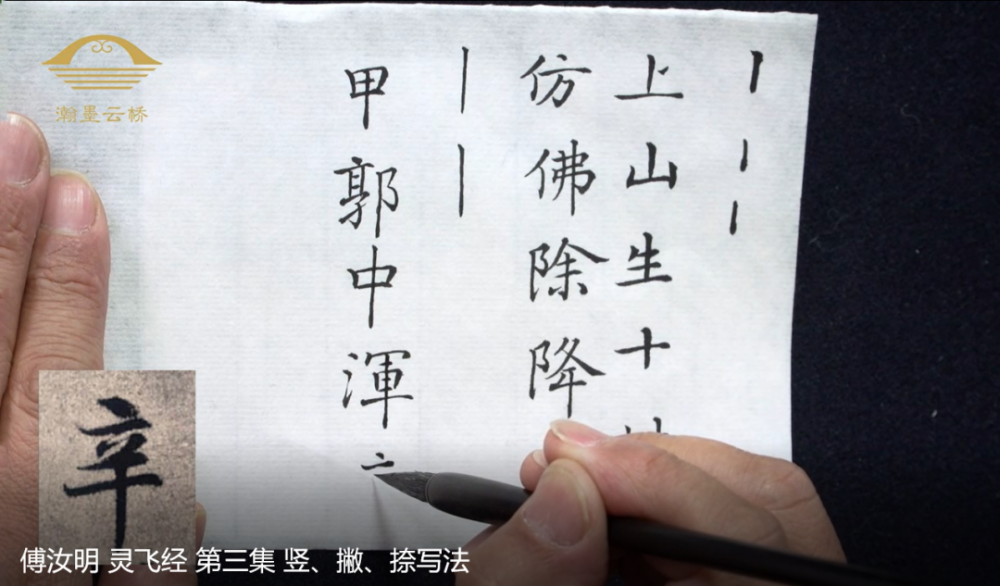 瀚墨云桥
上山生十
仿佛除降
甲郭中渾
辛
傅汝明 灵飞经 第三集 竖、撇、捺写法